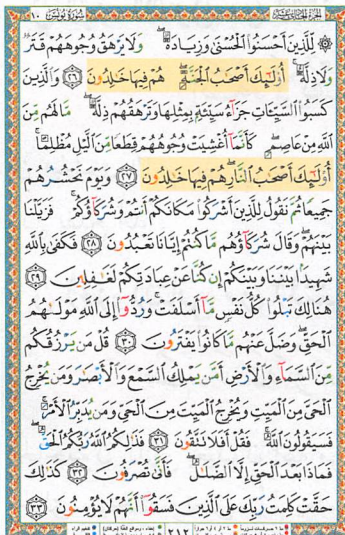 سورة يونس ١٠
الجزء الحادي عشر
لِّلَّذِينَ أَحْسَنُوا الْحُسْنَىٰ وَزِيَادَةٌ ۖ وَلَا يَرْهَقُ وُجُوهَهُمْ قَتَرٌ
وَلَا ذِلَّةٌ ۚ أُولَٰئِكَ أَصْحَابُ الْجَنَّةِ ۖ هُمْ فِيهَا خَالِدُونَ ﴿٢٦﴾ وَالَّذِينَ
كَسَبُوا السَّيِّئَاتِ جَزَاءُ سَيِّئَةٍ بِمِثْلِهَا وَتَرْهَقُهُمْ ذِلَّةٌ ۖ مَّا لَهُم مِّنَ
اللَّهِ مِنْ عَاصِمٍ ۖ كَأَنَّمَا أُغْشِيَتْ وُجُوهُهُمْ قِطَعًا مِّنَ اللَّيْلِ مُظْلِمًا ۚ
أُولَٰئِكَ أَصْحَابُ النَّارِ ۖ هُمْ فِيهَا خَالِدُونَ ﴿٢٧﴾ وَيَوْمَ نَحْشُرُهُمْ
جَمِيعًا ثُمَّ نَقُولُ لِلَّذِينَ أَشْرَكُوا مَكَانَكُمْ أَنتُمْ وَشُرَكَاؤُكُمْ ۚ فَزَيَّلْنَا
بَيْنَهُمْ ۖ وَقَالَ شُرَكَاؤُهُم مَّا كُنتُمْ إِيَّانَا تَعْبُدُونَ ﴿٢٨﴾ فَكَفَىٰ بِاللَّهِ
شَهِيدًا بَيْنَنَا وَبَيْنَكُمْ إِن كُنَّا عَنْ عِبَادَتِكُمْ لَغَافِلِينَ ﴿٢٩﴾
هُنَالِكَ تَبْلُو كُلُّ نَفْسٍ مَّا أَسْلَفَتْ ۚ وَرُدُّوا إِلَى اللَّهِ مَوْلَاهُمُ
الْحَقِّ ۖ وَضَلَّ عَنْهُم مَّا كَانُوا يَفْتَرُونَ ﴿٣٠﴾ قُلْ مَن يَرْزُقُكُم
مِّنَ السَّمَاءِ وَالْأَرْضِ أَمَّن يَمْلِكُ السَّمْعَ وَالْأَبْصَارَ وَمَن يُخْرِجُ
الْحَيَّ مِنَ الْمَيِّتِ وَيُخْرِجُ الْمَيِّتَ مِنَ الْحَيِّ وَمَن يُدَبِّرُ الْأَمْرَ ۚ
فَسَيَقُولُونَ اللَّهُ ۚ فَقُلْ أَفَلَا تَتَّقُونَ ﴿٣١﴾ فَذَٰلِكُمُ اللَّهُ رَبُّكُمُ الْحَقُّ ۖ
فَمَاذَا بَعْدَ الْحَقِّ إِلَّا الضَّلَالُ ۖ فَأَنَّىٰ تُصْرَفُونَ ﴿٣٢﴾ كَذَٰلِكَ
حَقَّتْ كَلِمَتُ رَبِّكَ عَلَى الَّذِينَ فَسَقُوا أَنَّهُمْ لَا يُؤْمِنُونَ ﴿٣٣﴾
٢١٢